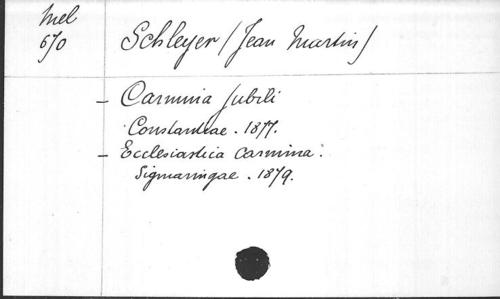 Mel
670
Schleyer (Jean Martin)
- Carmina Jubili
Constantiae. 1877.
- Ecclesiastica Carmina.
Sigmaringae. 1879.